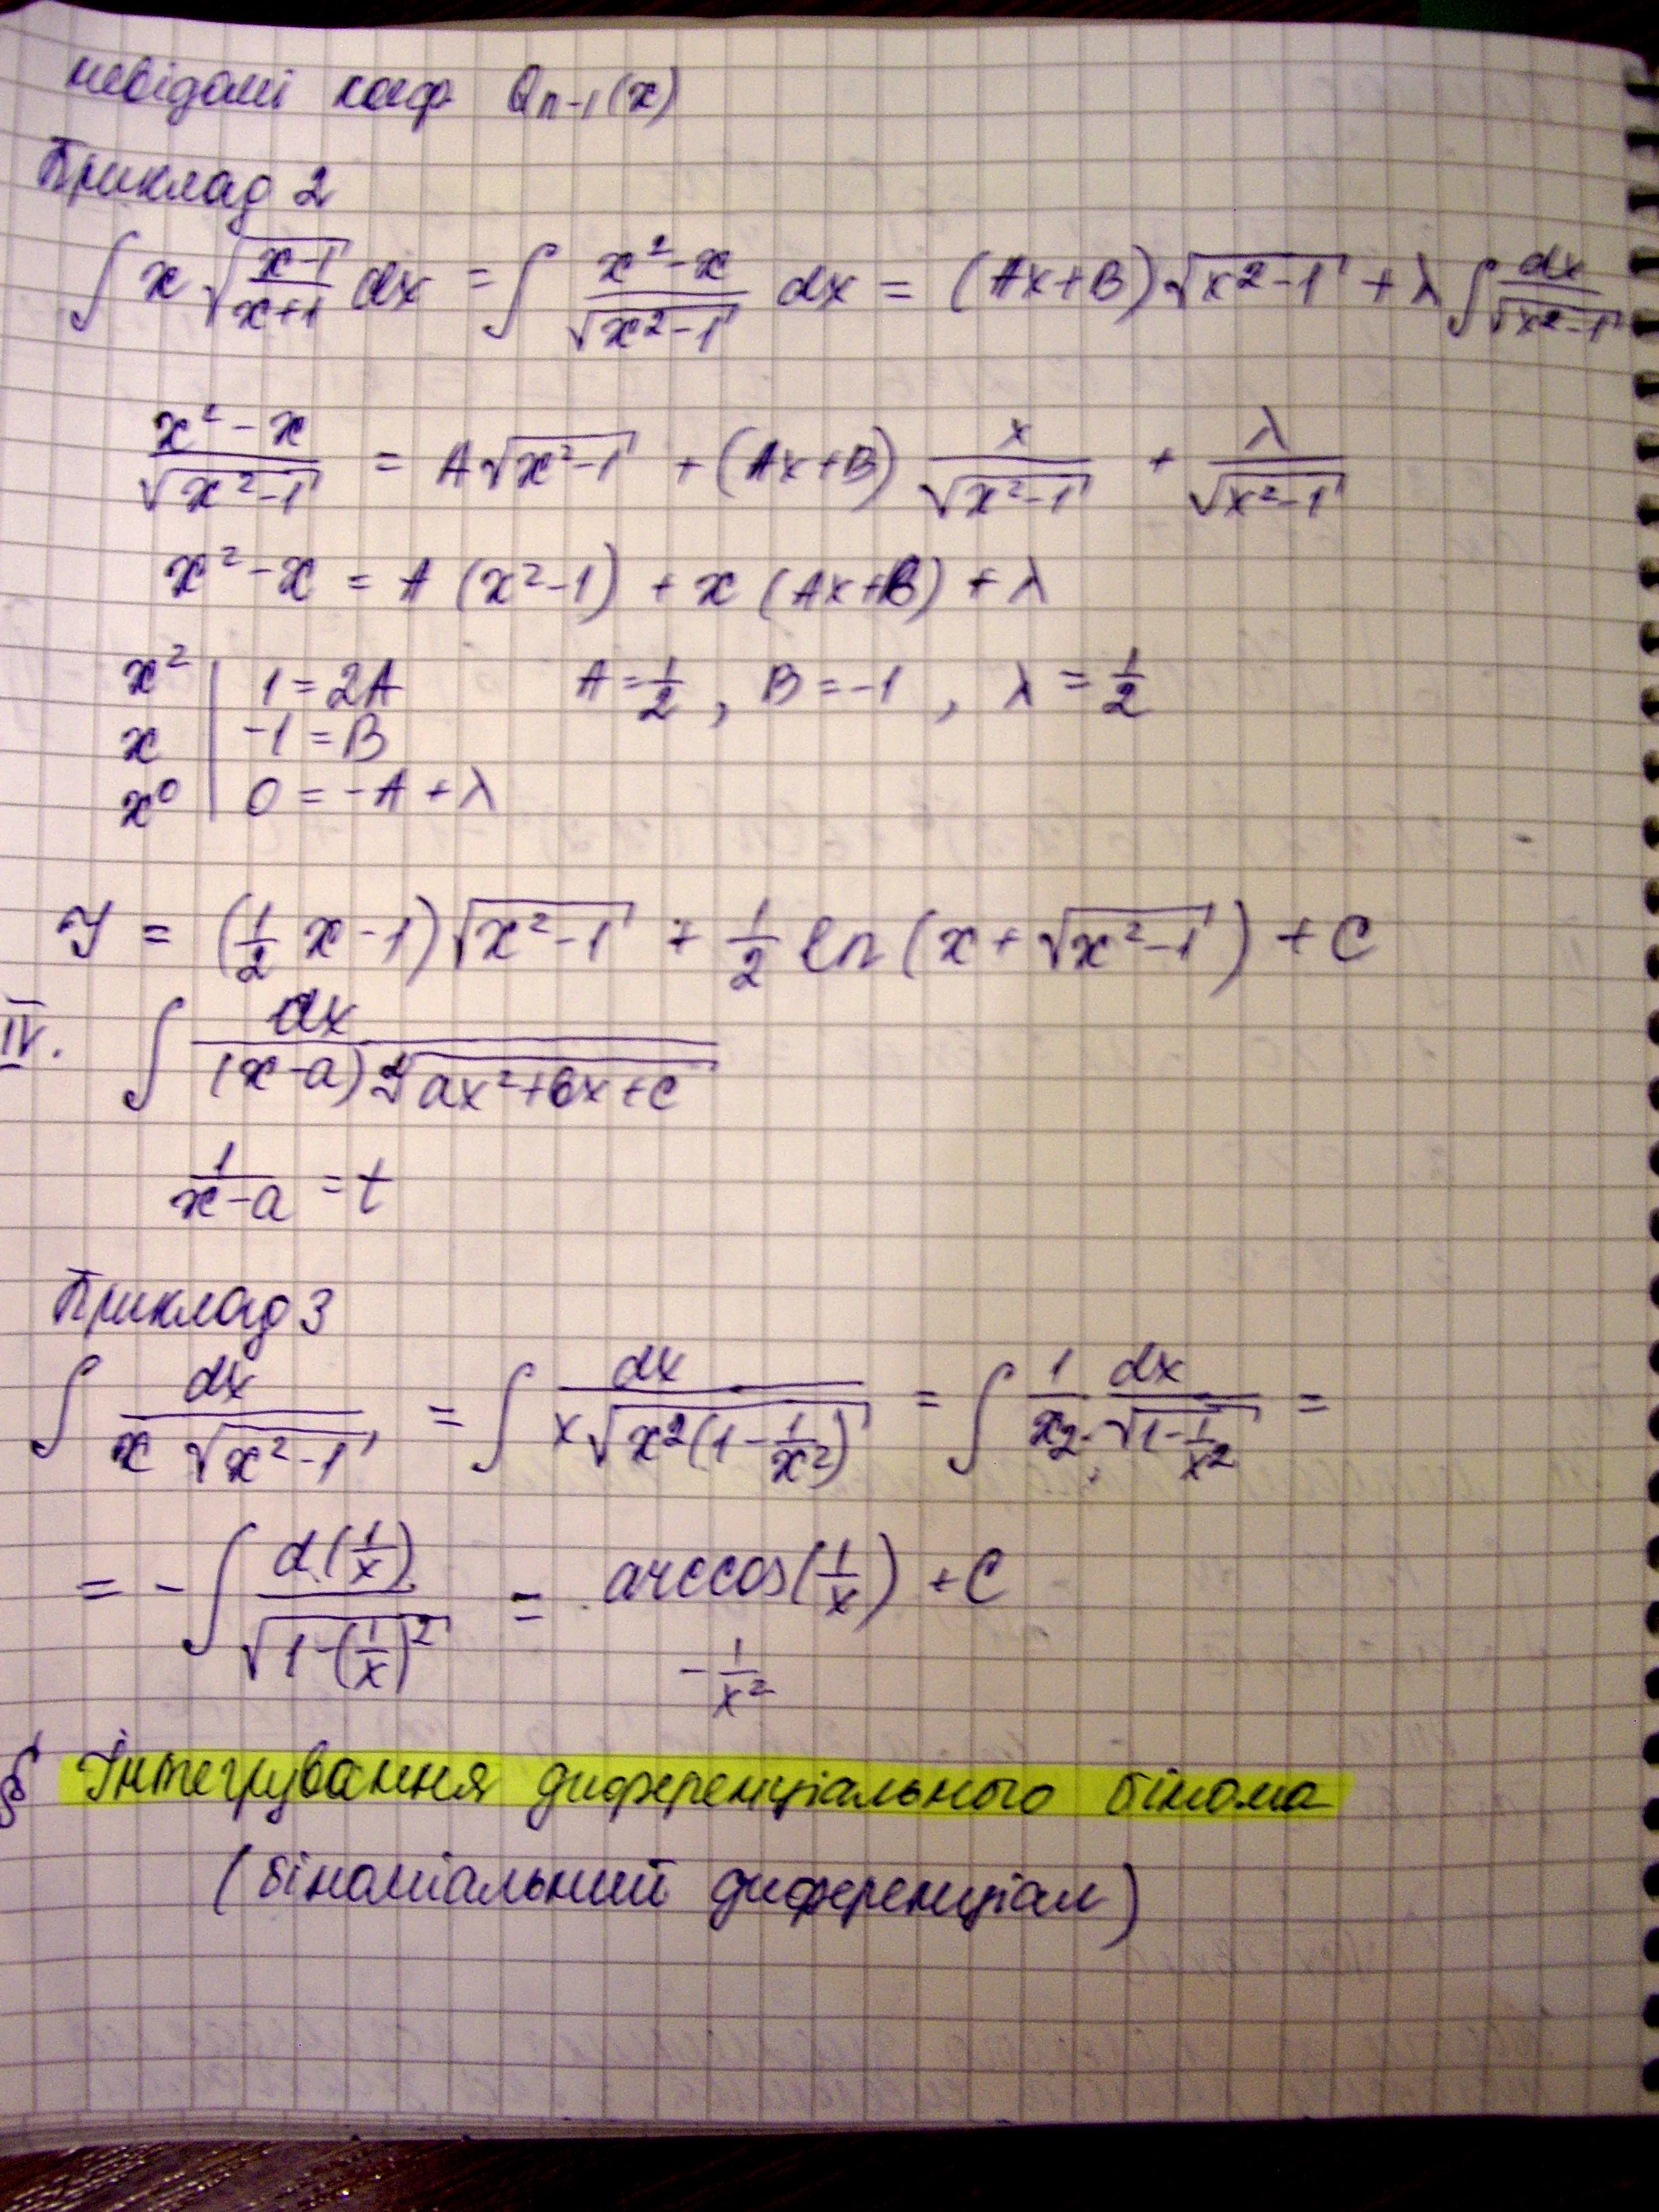 невідомі коеф. Qn-1(x)
Приклад 2
∫ x √((x-1)/(x+1)) dx = ∫ (x²-x)/√(x²-1) dx = (Ax+B)√(x²-1) + λ ∫ dx/√(x²-1)
(x²-x)/√(x²-1) = A√(x²-1) + (Ax+B) x/√(x²-1) + λ/√(x²-1)
x²-x = A(x²-1) + x(Ax+B) + λ
x² | 1=2A A=1/2, B=-1, λ=1/2
x | -1=B
x⁰ | 0=-A+λ
Y = (1/2 x-1)√(x²-1) + 1/2 ln(x+√(x²-1)) + C
IV. ∫ dx/((x-a) ²√(ax²+bx+c))
1/(x-a) = t
Приклад 3
∫ dx/(x √(x²-1)) = ∫ dx/(x√(x²(1-1/x²))) = ∫ 1/x2 · dx/√(1-1/x²) =
= -∫ d(1/x)/√(1-(1/x)²) = arccos(1/x) + C
-1/x²
§ Інтегрування диференціального бінома
(біноміальний диференціал)